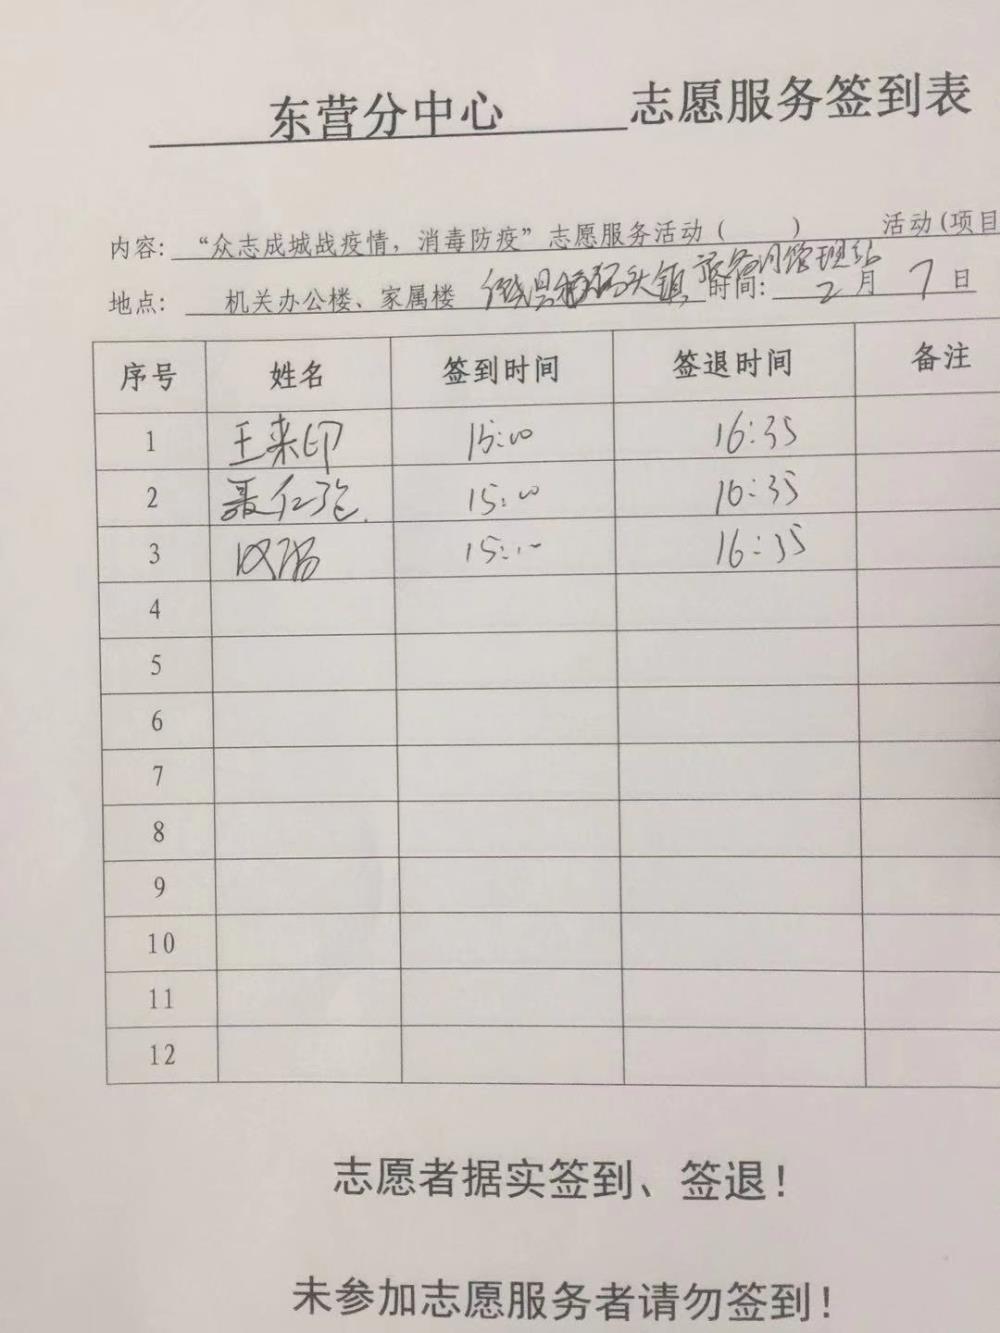 东营分中心 志愿服务签到表
内容: “众志成城战疫情,消毒防疫”志愿服务活动( ) 活动(项目
地点: 机关办公楼、家属楼 码头镇 管理站 时间: 2 月 7 日
序号 姓名 签到时间 签退时间 备注
1 王来印 15:00 16:35
2 聂仁 15:00 16:35
3 15:10 16:35
4
5
6
7
8
9
10
11
12
志愿者据实签到、签退!
未参加志愿服务者请勿签到!